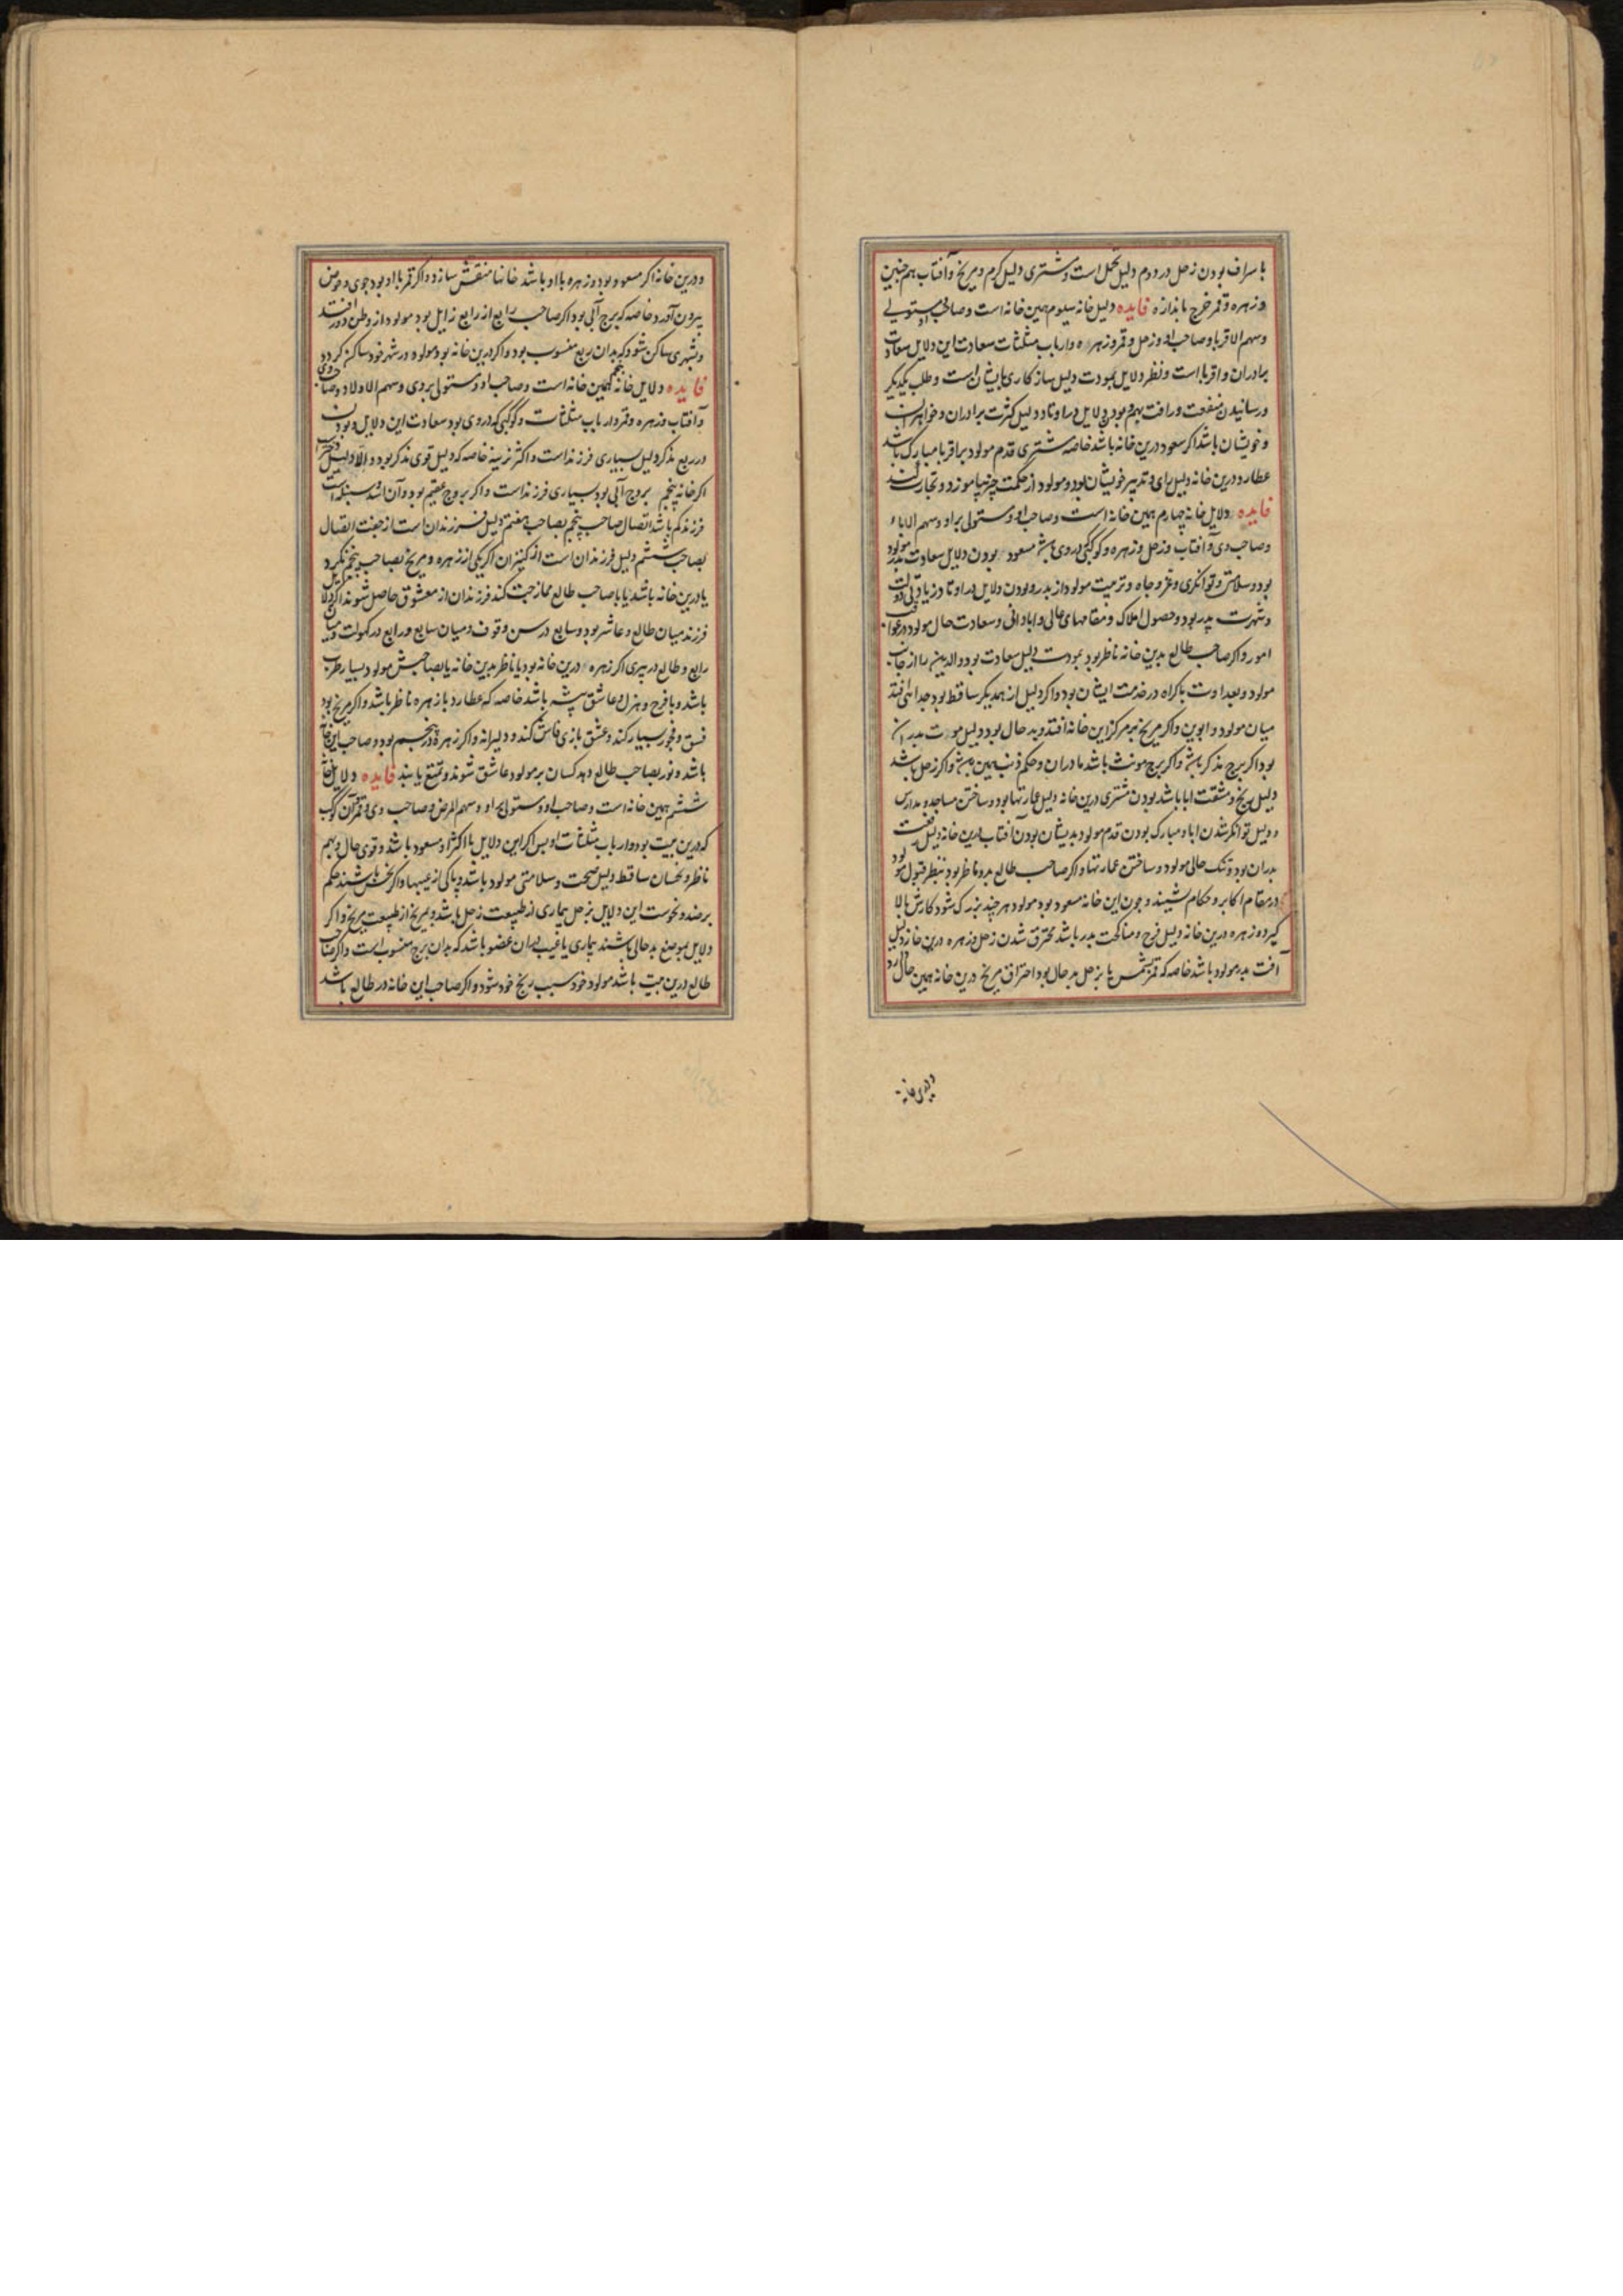 باسراف بودن زحل در دوم دلیل بخل است و مشتری دلیل کرم و مریخ و آفتاب هم چنین
و زهره و قمر خرج باندازه فایده دلیل خانه سیوم همین خانه است و صاحب او و مستولی
و سهم الاقربا و صاحب او و زحل و قمر و زهره و ارباب مثلثات سعادت این دلایل سعادت
برادران و اقربا است و نظر دلایل بمودت دلیل سازکاری بایشان است و طلب یکدیگر
و رسانیدن منفعت و رافت بهم و بودن دلایل در اوتاد دلیل کثرت برادران و خواهران
و خویشان باشد اگر سعود درین خانه باشد خاصه مشتری قدم مولود بر اقربا مبارک باشد
عطارد درین خانه دلیل رای و تدبیر خویشان بود و مولود از حکمت چیزها آموزد و تجارت کند
فایده دلایل خانه چهارم همین خانه است و صاحب او و مستولی بر او و سهم الاباء
و صاحب وی و آفتاب و زحل و زهره و کوکبی که دروی باشد مسعود بودن دلایل سعادت پدر مولود
بود و سلامتی و توانگری و عز و جاه و تربیت مولود از پدر و بودن دلایل در اوتاد زیادتی دولت
و شهرت پدر بود و حصول املاک و مقامهای عالی و ابادانی و سعادت حال مولود در عواقب
امور و اگر صاحب طالع بدین خانه ناظر بود بمودت دلیل سعادت بود والدین را از جانب
مولود و بعداوت باکراه در خدمت ایشان بود و اگر دلیل از همدیگر ساقط بود جدائی افتد
میان مولود و ابوین و اگر مریخ بر مرکز این خانه افتد و بد حال بود دلیل موت پدران
بود اگر برج مذکر باشد و اگر برج مونث باشد مادران و حکم ذنب همین باشد و اگر زحل باشد
دلیل رنج و مشقت ابا باشد بودن مشتری درین خانه دلیل عمارتها بود و ساختن مساجد و مدارس
و دلیل توانگر شدن ابا و مبارک بودن قدم مولود بدیشان بودن آفتاب درین خانه دلیل رفعت
پدران بود و تنک حالی مولود و ساختن عمارتها و اگر صاحب طالع بدو ناظر بود بنظر قبول مولود
در مقام اکابر و حکام نشیند و چون این خانه مسعود بود مولود هر چند بزرک شود کارش بالا
گیرد و زهره درین خانه دلیل فرح و مناکحت پدر باشد محترق شدن زحل و زهره درین خانه دلیل
آفت پدر مولود باشد خاصه که قمر بشمس یا بزحل بد حال بود احتراق مریخ درین خانه همین حال دارد
و درین خانه
و درین خانه اگر مسعود بود و زهره با او باشد خانها منقش سازد و اگر قمر با او بود جوی و حوض
بیرون آورد خاصه که برج آبی بود اگر صاحب رابع از رابع زایل بود مولود از وطن دور افتد
و بشهری ساکن شود که بدان ربع منسوب بود و اگر درین خانه بود مولود در شهر خود ساکن گردد
فایده دلایل خانه پنجم همین خانه است و صاحب او و مستولی بر وی و سهم الاولاد و صاحب وی
و آفتاب و زهره و قمر و ارباب مثلثات و کوکبی که دروی بود سعادت این دلایل و بودن
در ربع مذکر دلیل بسیاری فرزند است و اکثر نرینه خاصه که دلیل قوی مذکر بود و الا دلیل دختران
اگر خانه پنجم بروج آبی بود بسیاری فرزند است و اگر بروج عقیم بود و آن اسد و سنبله است
فرزند کم باشد اتصال صاحب پنجم بصاحب هفتم دلیل فرزندان است از جفت اتصال
بصاحب ششم دلیل فرزندان است از کنیزان اگر یکی از زهره و مریخ بصاحب پنجم نکرد
یا درین خانه باشد یا با صاحب طالع ممازجت کند فرزندان از معشوق حاصل شوند اگر دلایل
فرزند میان طالع و عاشر بود و سابع در سن وقوف و میان سابع و رابع در کهولت و میان
رابع و طالع در پیری اگر زهره درین خانه بود یا ناظر بدین خانه یا بصاحبش مولود بسیار طرب
باشد و با فرح و هزل و عاشق پیشه باشد خاصه که عطارد با زهره ناظر باشد و اگر مریخ بود
فسق و فجور بسیار کند و عشق بازی فاش کند و دلیرانه و اگر زهره در پنجم بود و صاحب این خانه
باشد و نور بصاحب طالع دهد کسان بر مولود عاشق شوند و تمتع یابند فایده دلایل خانه
ششم همین خانه است و صاحب او و مستولی بر او و سهم المرض و صاحب وی و قمر و آن کوکب
که درین بیت بود و ارباب مثلثات او پس اگر این دلایل یا اکثر او مسعود باشد و قوی حال و بهم
ناظر و نحسان ساقط دلیل صحت و سلامتی مولود باشد و پاکی از عیبها و اگر نحس باشند حکم
بر ضد و نحوست این دلایل بزحل بیماری از طبیعت زحل باشد و بمریخ از طبیعت مریخ و اگر
دلایل بموضع بدحالی باشند بیماری یا عیب بدان عضو باشد که بدان برج منسوب است و اگر صاحب
طالع درین بیت باشد مولود خود سبب رنج خود شود و اگر صاحب این خانه در طالع باشد